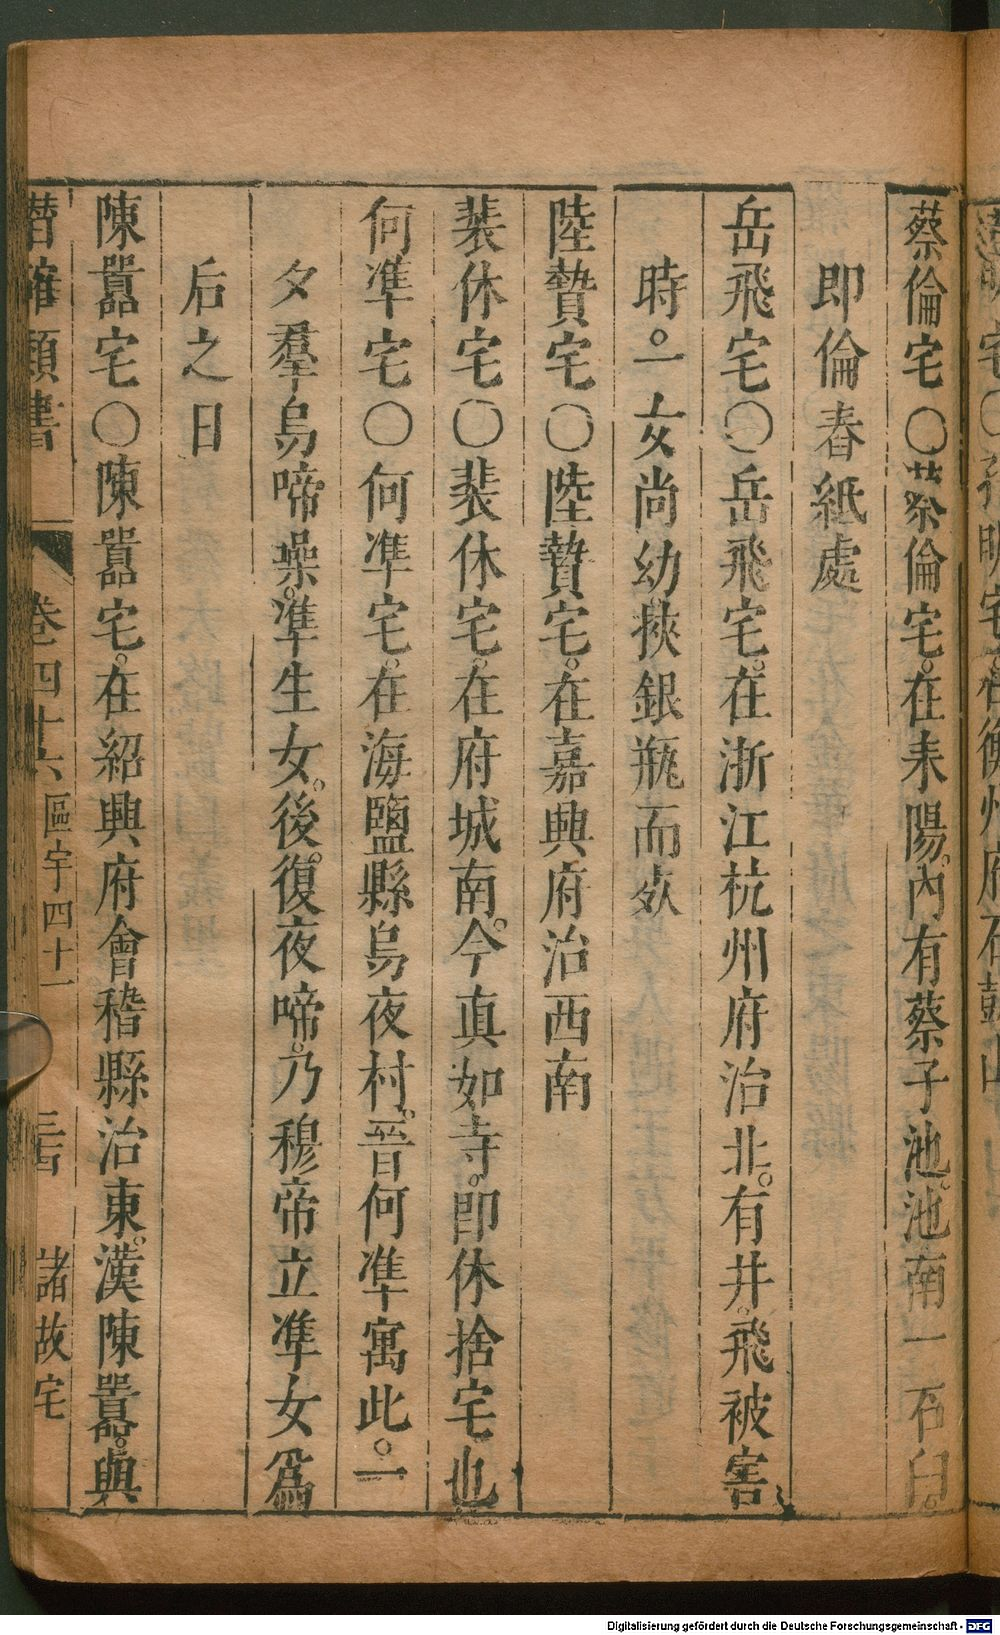 蔡倫宅〇蔡倫宅。在耒陽。內有蔡子池。池南一石臼。
即倫舂紙處
岳飛宅〇岳飛宅。在浙江杭州府治北。有井。飛被害
時。一女尚幼挾銀瓶而歿
陸贄宅〇陸贄宅。在嘉興府治西南
裴休宅〇裴休宅。在府城南。今真如寺。即休捨宅也
何準宅〇何準宅。在海鹽縣烏夜村。晉何準寓此。一
夕羣烏啼噪。準生女。後。復夜啼。乃穆帝立準女爲
后之日
陳囂宅〇陳囂宅。在紹興府會稽縣治東。漢陳囂。與
潛確類書 卷四十六 區宇四十一 諸故宅
Digitalisierung gefördert durch die Deutsche Forschungsgemeinschaft - DFG